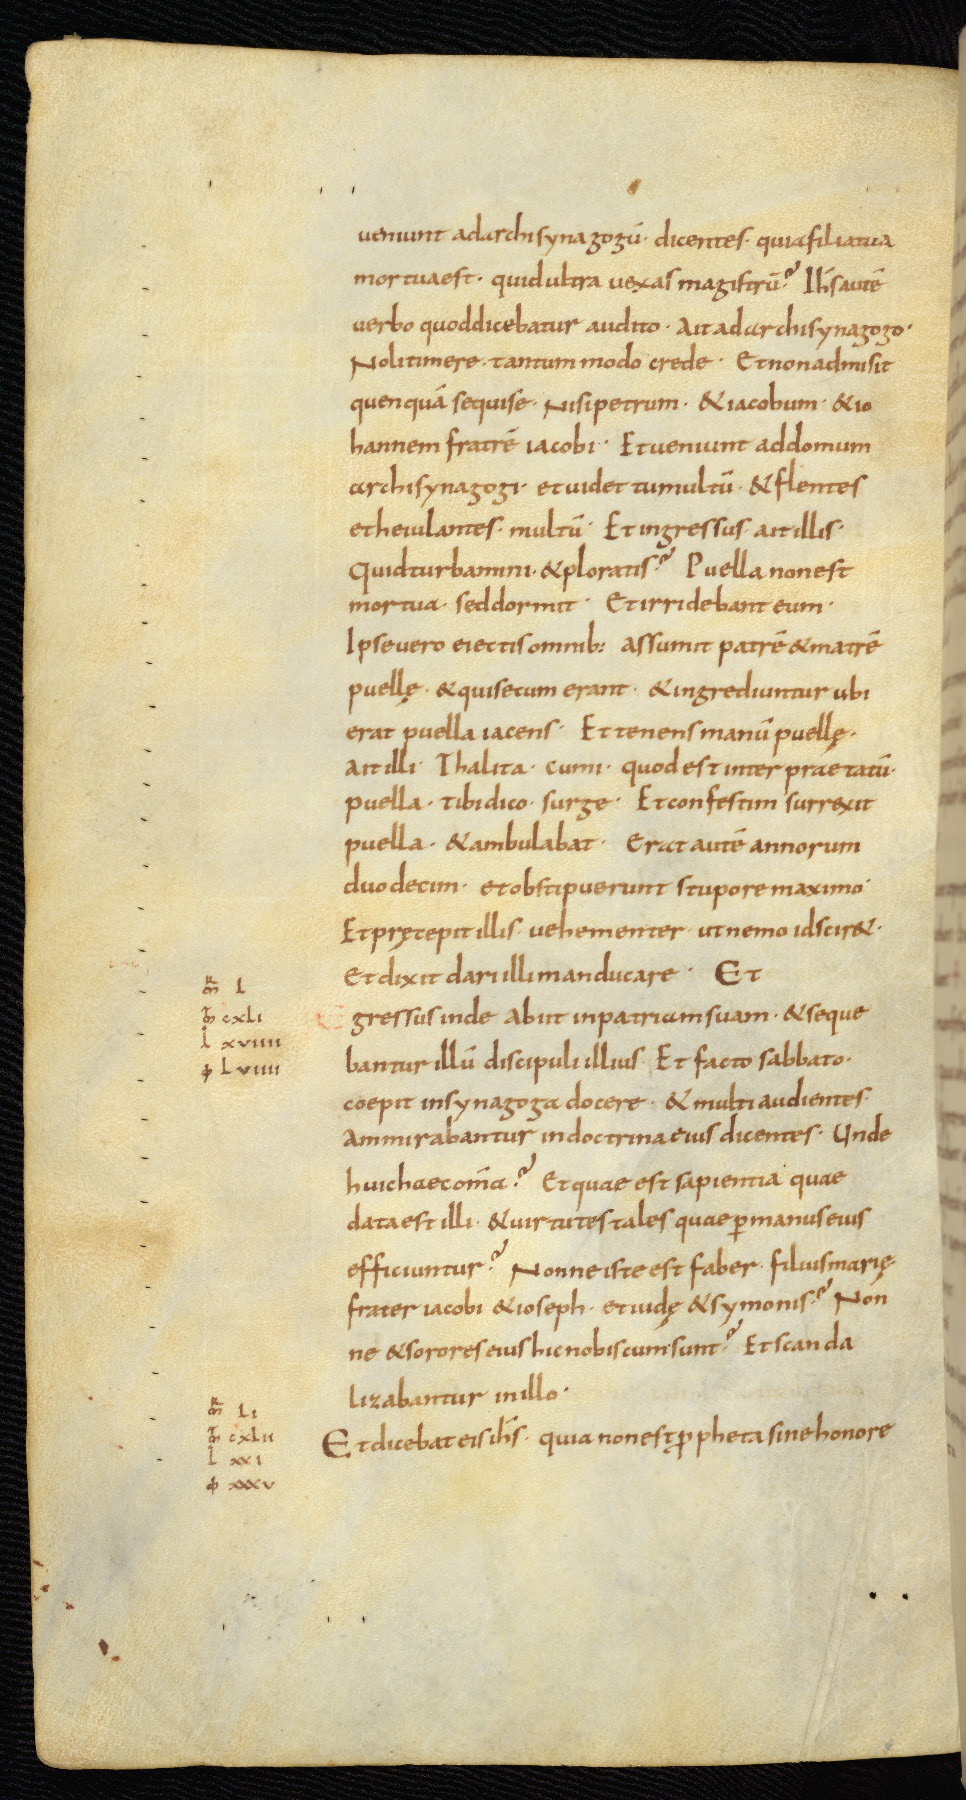 ueniunt adarchisynagogū· dicentes· quiafiliatua
mortuaest· quidultra uexas magistrū? Ihs̄ autē
uerbo quoddicebatur audito· Ait adarchisynagogo·
Nolitimere· tantummodo crede· Etnonadmisit
quenquā sequise· Nisipetrum· &iacobum· &io
hannem fratrē iacobi· Etueniunt addomum
archisynagogi· etuidet tumultū· &flentes
etheiulantes· multū· Et ingressus· ait illis·
Quidturbamini· &ploratis? Puella nonest
mortua· seddormit· Et irridebant eum·
Ipseuero eiectisomnib: assumit patrē &matrē
puellę· &quisecum erant· &ingrediuntur ubi
erat puella iacens· Et tenens manū puellę·
Ait illi· Thalita· cumi· quod est inter praetatū·
puella· tibidico· surge· Etconfestim surrexit
puella· &ambulabat· Erat autē annorum
duodecim· etobstipuerunt stupore maximo·
Etpręcepit illis· uehementer· ut nemo idscir&·
Et dixit dari illi manducare· Et
R̄m L
gressus inde abiit inpatriam suam· &seque
m̄t cxli
bantur illū discipuli illius Et facto sabbato·
l xviiii
coepit insynagoga docere· &multi audientes·
ϕ Lviiii
Ammirabantur indoctrina eius dicentes· Unde
huic haec om̄a? Et quae est sapientia quae
data est illi· &uirtutes tales quae p̄ manus eius
efficiuntur? Nonne iste est faber· filius marię·
frater iacobi &ioseph· et iudę &symonis? Non
ne &sorores eius hic nobiscum sunt? Et scanda
lizabantur in illo·
R̄m Li
Et dicebat eis ihs̄· quia non est p̄pheta sine honore
m̄t cxlii
l xxi
ϕ xxxv